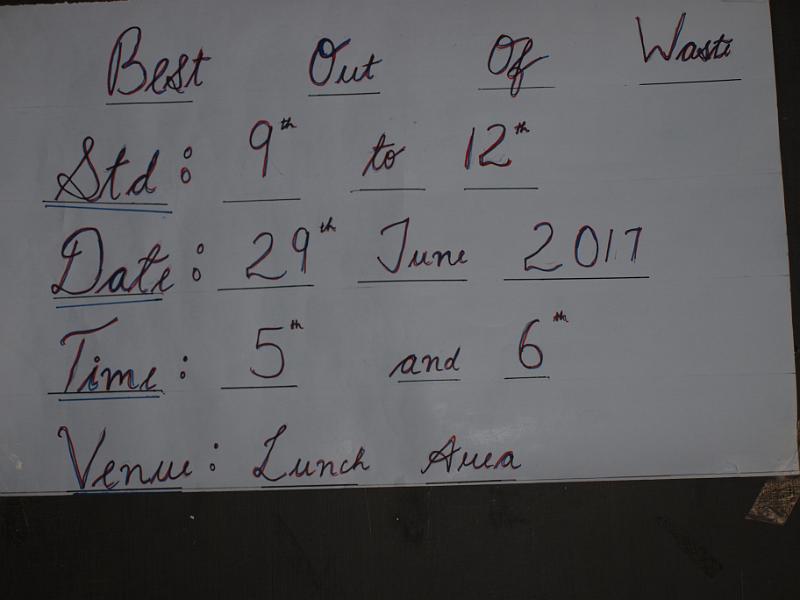 Best Out Of Waste
Std: 9th to 12th
Date: 29th June 2017
Time: 5th and 6th
Venue: Lunch Area